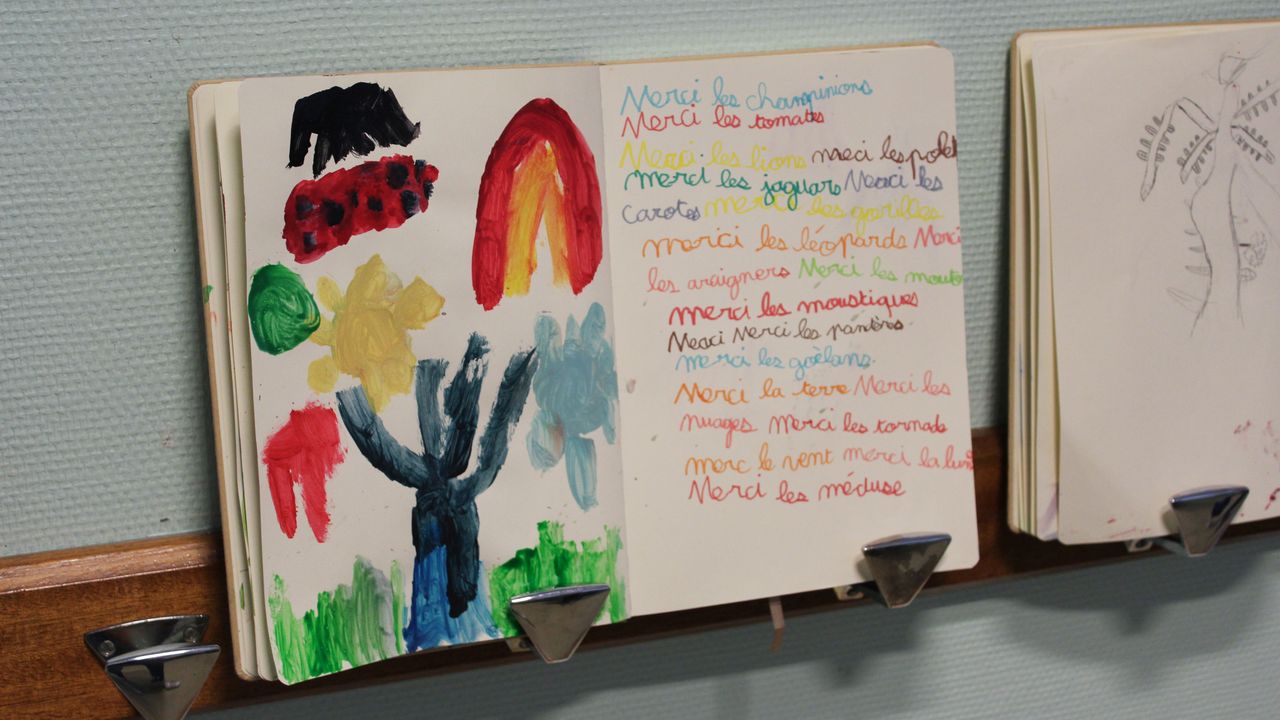 Merci les champinions
Merci les tomates
Merci les lions meci les
Merci les jaguars Merci les
Carotes merci les gorilles
merici les léopards Merci
les araigners Merci les
merci les moustiques
Merci Merci les pantèrs
merci les goèlans.
Merci la terre Merci les
nuages Merci les tornade
merc le vent merci la lun
Merci les méduse